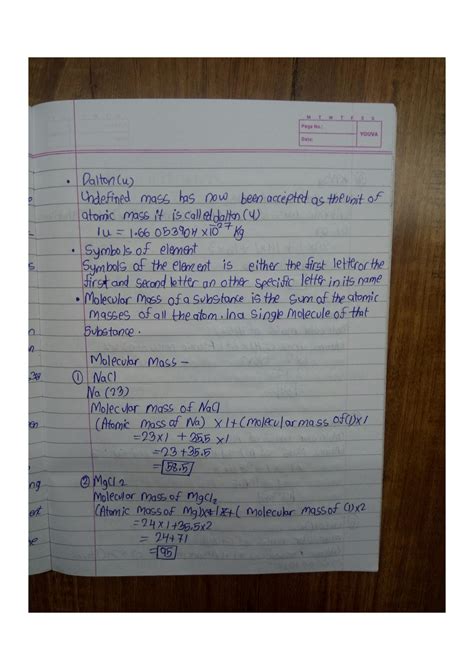 M T W T F S S
Page No.:
YOUVA
Date:
• Dalton(u)
Undefined mass has now been accepted as the unit of
atomic mass it is called dalton (u)
1u = 1.66053904 × 10^27 Kg
• Symbols of element
Symbols of the element is either the first letter or the
first and second letter an other specific letter in its name
• Molecular Mass of a Substance is the Sum of the atomic
masses of all the atom. In a single Molecule of that
Substance.
Molecular Mass –
① NaCl
Na (23)
Molecular mass of NaCl
(Atomic mass of Na) ×1+(molecular mass of Cl)×1
=23×1 + 35.5 ×1
=23+35.5
=58.5
② MgCl2
Molecular mass of MgCl2
(Atomic Mass of Mg)×1+( molecular mass of Cl)×2
=24×1+35.5×2
= 24+71
=95